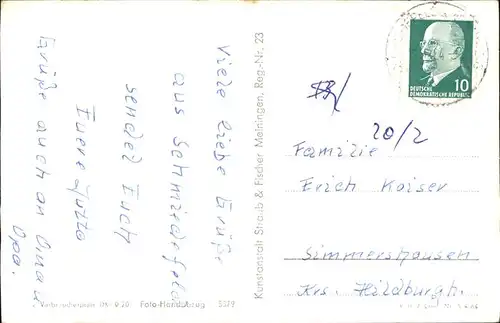 Viele liebe Grüße
aus Schmiedefeld
sendet Euch
Euere Jutta
Grüße auch an Oma u
Opa.
Verbraucherpreis MDN 0.20 Foto-Handabzug 5579
Kunstanstalt Straub & Fischer Meiningen, Reg.-Nr. 23
DEUTSCHE
DEMOKRATISCHE REPUBLIK 10
20/2
Familie
Erich Kaiser
Simmershausen
Krs. Hildburgh.